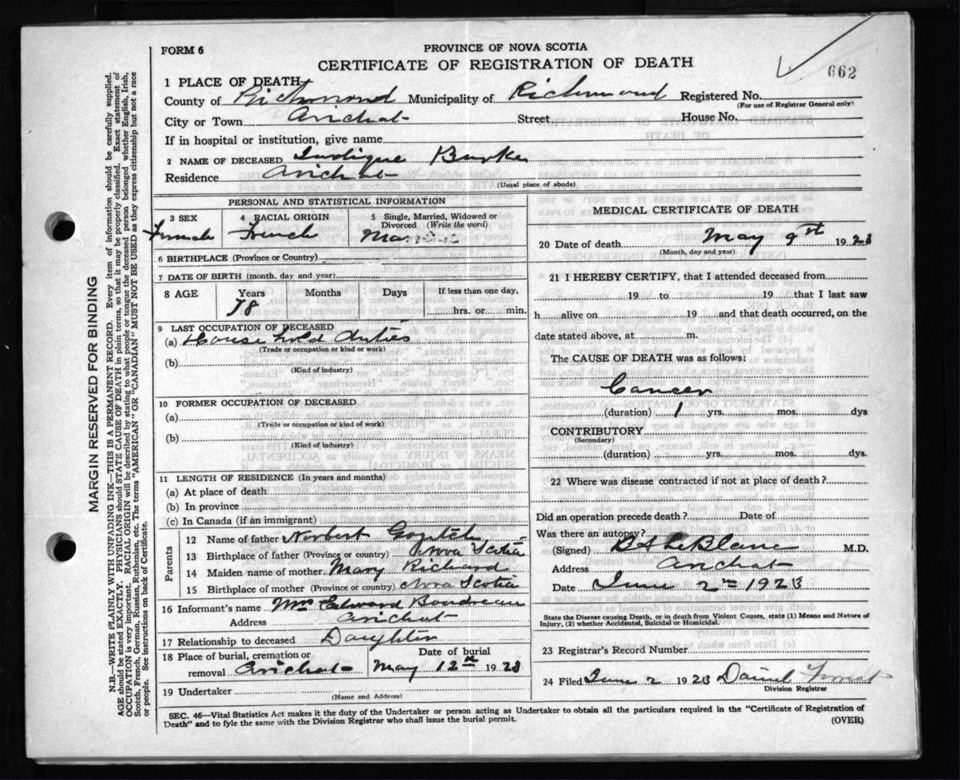 FORM 6
PROVINCE OF NOVA SCOTIA
CERTIFICATE OF REGISTRATION OF DEATH
662
1 PLACE OF DEATH
County of Richmond Municipality of Richmond Registered No.
(For use of Registrar General only)
City or Town Arichat Street House No.
If in hospital or institution, give name
2 NAME OF DECEASED Burke
Residence Arichat
(Usual place of abode)
PERSONAL AND STATISTICAL INFORMATION
3 SEX
4 RACIAL ORIGIN French
5 Single, Married, Widowed or Divorced (Write the word)
6 BIRTHPLACE (Province or Country)
7 DATE OF BIRTH (month, day and year)
8 AGE Years Months Days If less than one day,
78 hrs. or min.
9 LAST OCCUPATION OF DECEASED
(a) House hold duties
(Trade or occupation or kind or work)
(b)
(Kind of industry)
10 FORMER OCCUPATION OF DECEASED
(a)
(Trade or occupation or kind of work)
(b)
(Kind of industry)
11 LENGTH OF RESIDENCE (In years and months)
(a) At place of death
(b) In province
(c) In Canada (if an immigrant)
Parents
12 Name of father Norbert
13 Birthplace of father (Province or country) Nova Scotia
14 Maiden name of mother Mary Richard
15 Birthplace of mother (Province or country) Nova Scotia
16 Informant's name Mrs Edward Boudreau
Address Arichat
17 Relationship to deceased Daughter
18 Place of burial, cremation or removal Arichat Date of burial May 12th 1923
19 Undertaker
(Name and Address)
MEDICAL CERTIFICATE OF DEATH
20 Date of death May 9th 1923
(Month, day and year)
21 I HEREBY CERTIFY, that I attended deceased from
19 to 19 that I last saw
h alive on 19 and that death occurred, on
date stated above, at m.
The CAUSE OF DEATH was as follows:
Cancer
(duration) 1 yrs. mos. dys
CONTRIBUTORY
(Secondary)
(duration) yrs. mos. dys.
22 Where was disease contracted if not at place of death?
Did an operation precede death? Date of
Was there an autopsy?
(Signed) LeBlanc M.D.
Address Arichat
Date June 2nd 1923
State the Disease causing Death, or in death from Violent Causes, state (1) Means and Nature of
Injury, (2) whether Accidental, Suicidal or Homicidal.
23 Registrar's Record Number
24 Filed June 2 1923 Daniel
Division Registrar
SEC. 46—Vital Statistics Act makes it the duty of the Undertaker or person acting as Undertaker to obtain all the particulars required in the "Certificate of Registration of
Death" and to fyle the same with the Division Registrar who shall issue the burial permit.
(OVER)
MARGIN RESERVED FOR BINDING
N.B.—WRITE PLAINLY WITH UNFADING INK—THIS IS A PERMANENT RECORD. Every item of information should be carefully supplied.
AGE should be stated EXACTLY. PHYSICIANS should STATE CAUSE OF DEATH in plain terms, so that it may be properly classified. Exact statement of
OCCUPATION is very important. RACIAL ORIGIN will be described by stating to what people or tongue the deceased person belonged whether English, Irish,
Scotch, French, German, Russian, Ruthenian, etc. The terms "AMERICAN" OR "CANADIAN" MUST NOT BE USED as they express citizenship but not a race
or people. See instructions on back of Certificate.